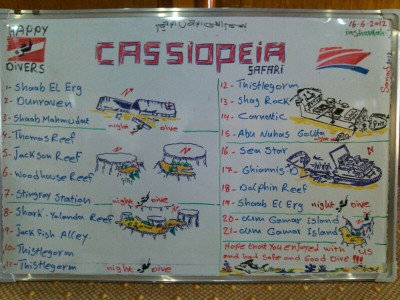 HAPPY
DIVERS
18-6-2012
inshaallah
CASSIOPEIA
SAFARI
1- Shaab EL Erg
2- Dunraven
3- Shaab Mahmudat
night dive
4- Thomas Reef
5- Jackson Reef
6- Woodhouse Reef
7- Stingray Station
night dive
8- Shark-Yolanda Reef
9- Jack Fish Alley
10- Thistlegorm
11- Thistlegorm
night dive
12- Thistlegorm
13- Shag Rock
14- Carnatic
15- Abu Nuhas Gouta
16- Sea Star
17- Ghiannis.D
18- Dolphin Reef
19- Shaab EL Erg
night dive
20- oum Gamar Island
21- oum Gamar Island
Hope that you enjoyed with us
and had Safe and Good Dive !!!